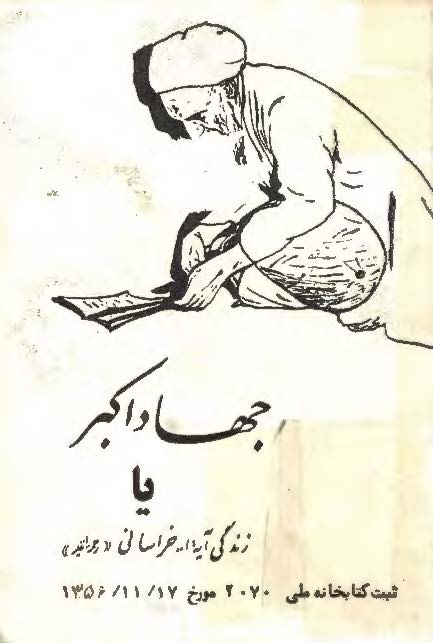 جهاد اکبر
یا
زندگی آیةاله خراسانی
ثبت کتابخانه ملی ۲۰۷۰ مورخ ۱۳۵۶/۱۱/۱۷